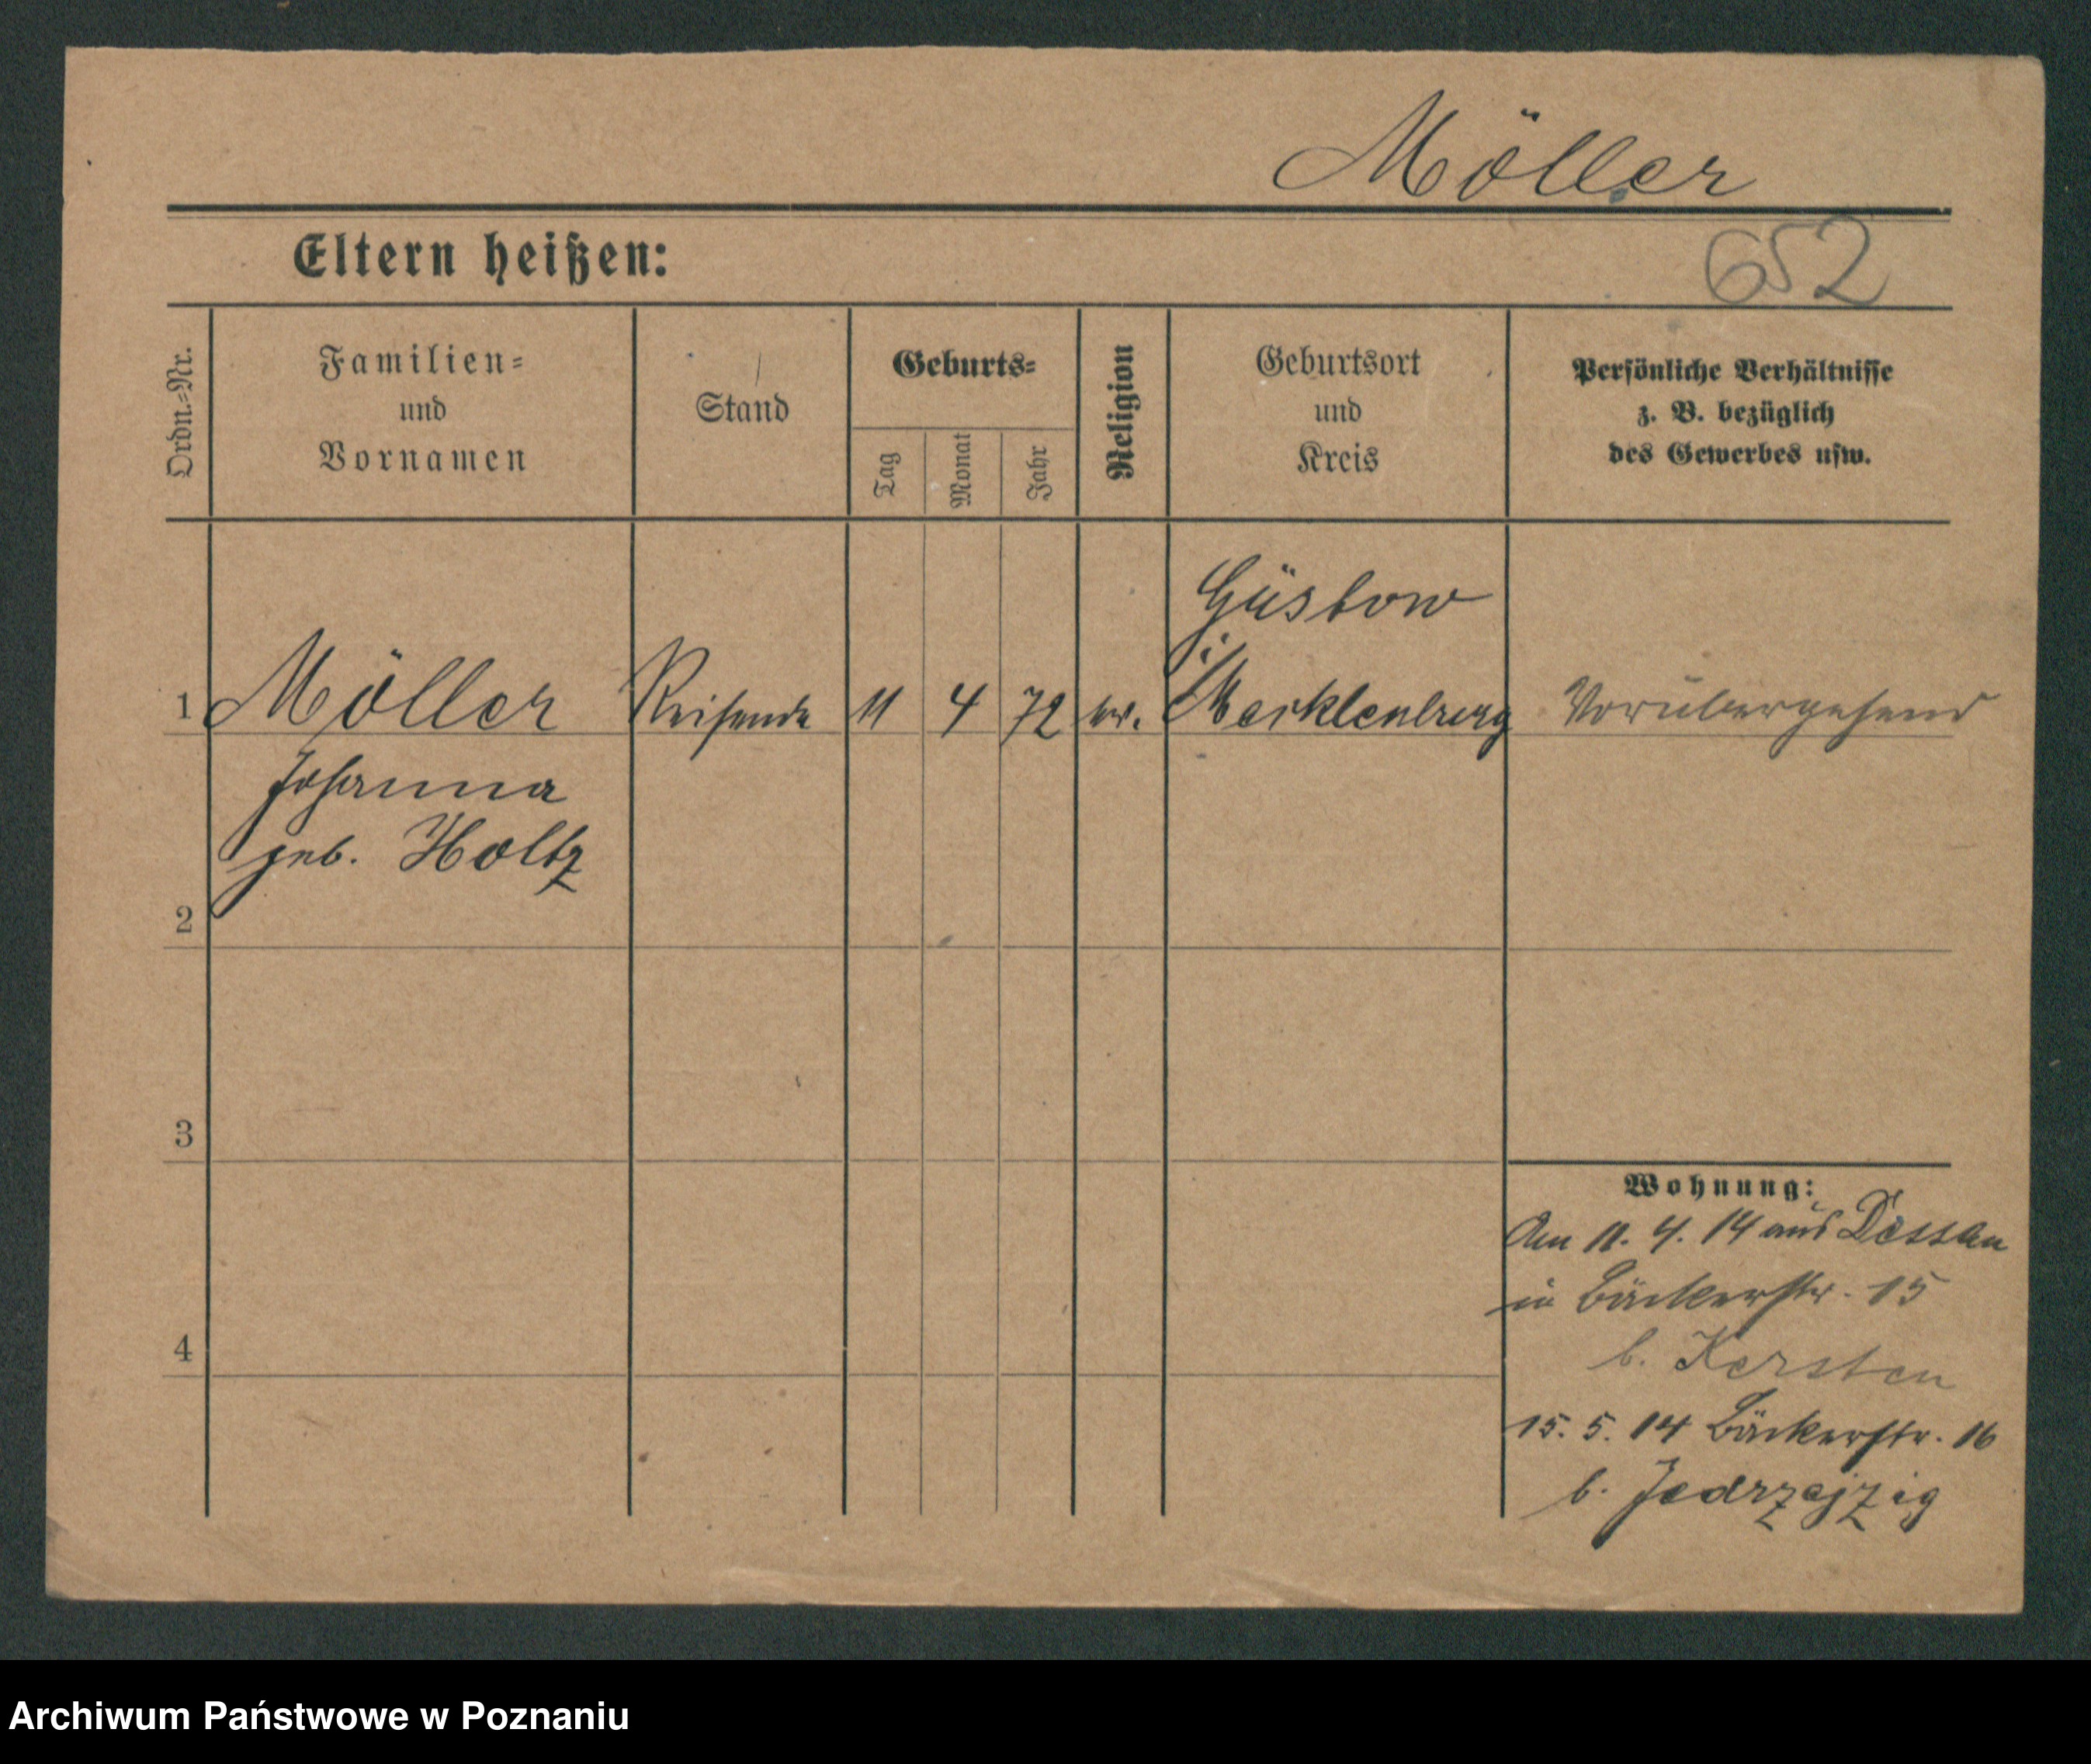 Möller
Eltern heißen:
652
Ordn.=Nr.
Familien=
und
Vornamen
Stand
Geburts=
Tag
Monat
Jahr
Religion
Geburtsort
und
Kreis
Persönliche Verhältnisse
z. B. bezüglich
des Gewerbes usw.
Güstow
i/
1 Möller Reisende 11 4 72 ev. Mecklenburg Vorübergehend
Johanna
geb. Holtz
2
3
Wohnung:
Am 11. 4. 14 aus Dessau
in Bäckerstr. 15
4
b. Kersten
15. 5. 14 Bäckerstr. 16
b. Jedrzejzig
Archiwum Państwowe w Poznaniu